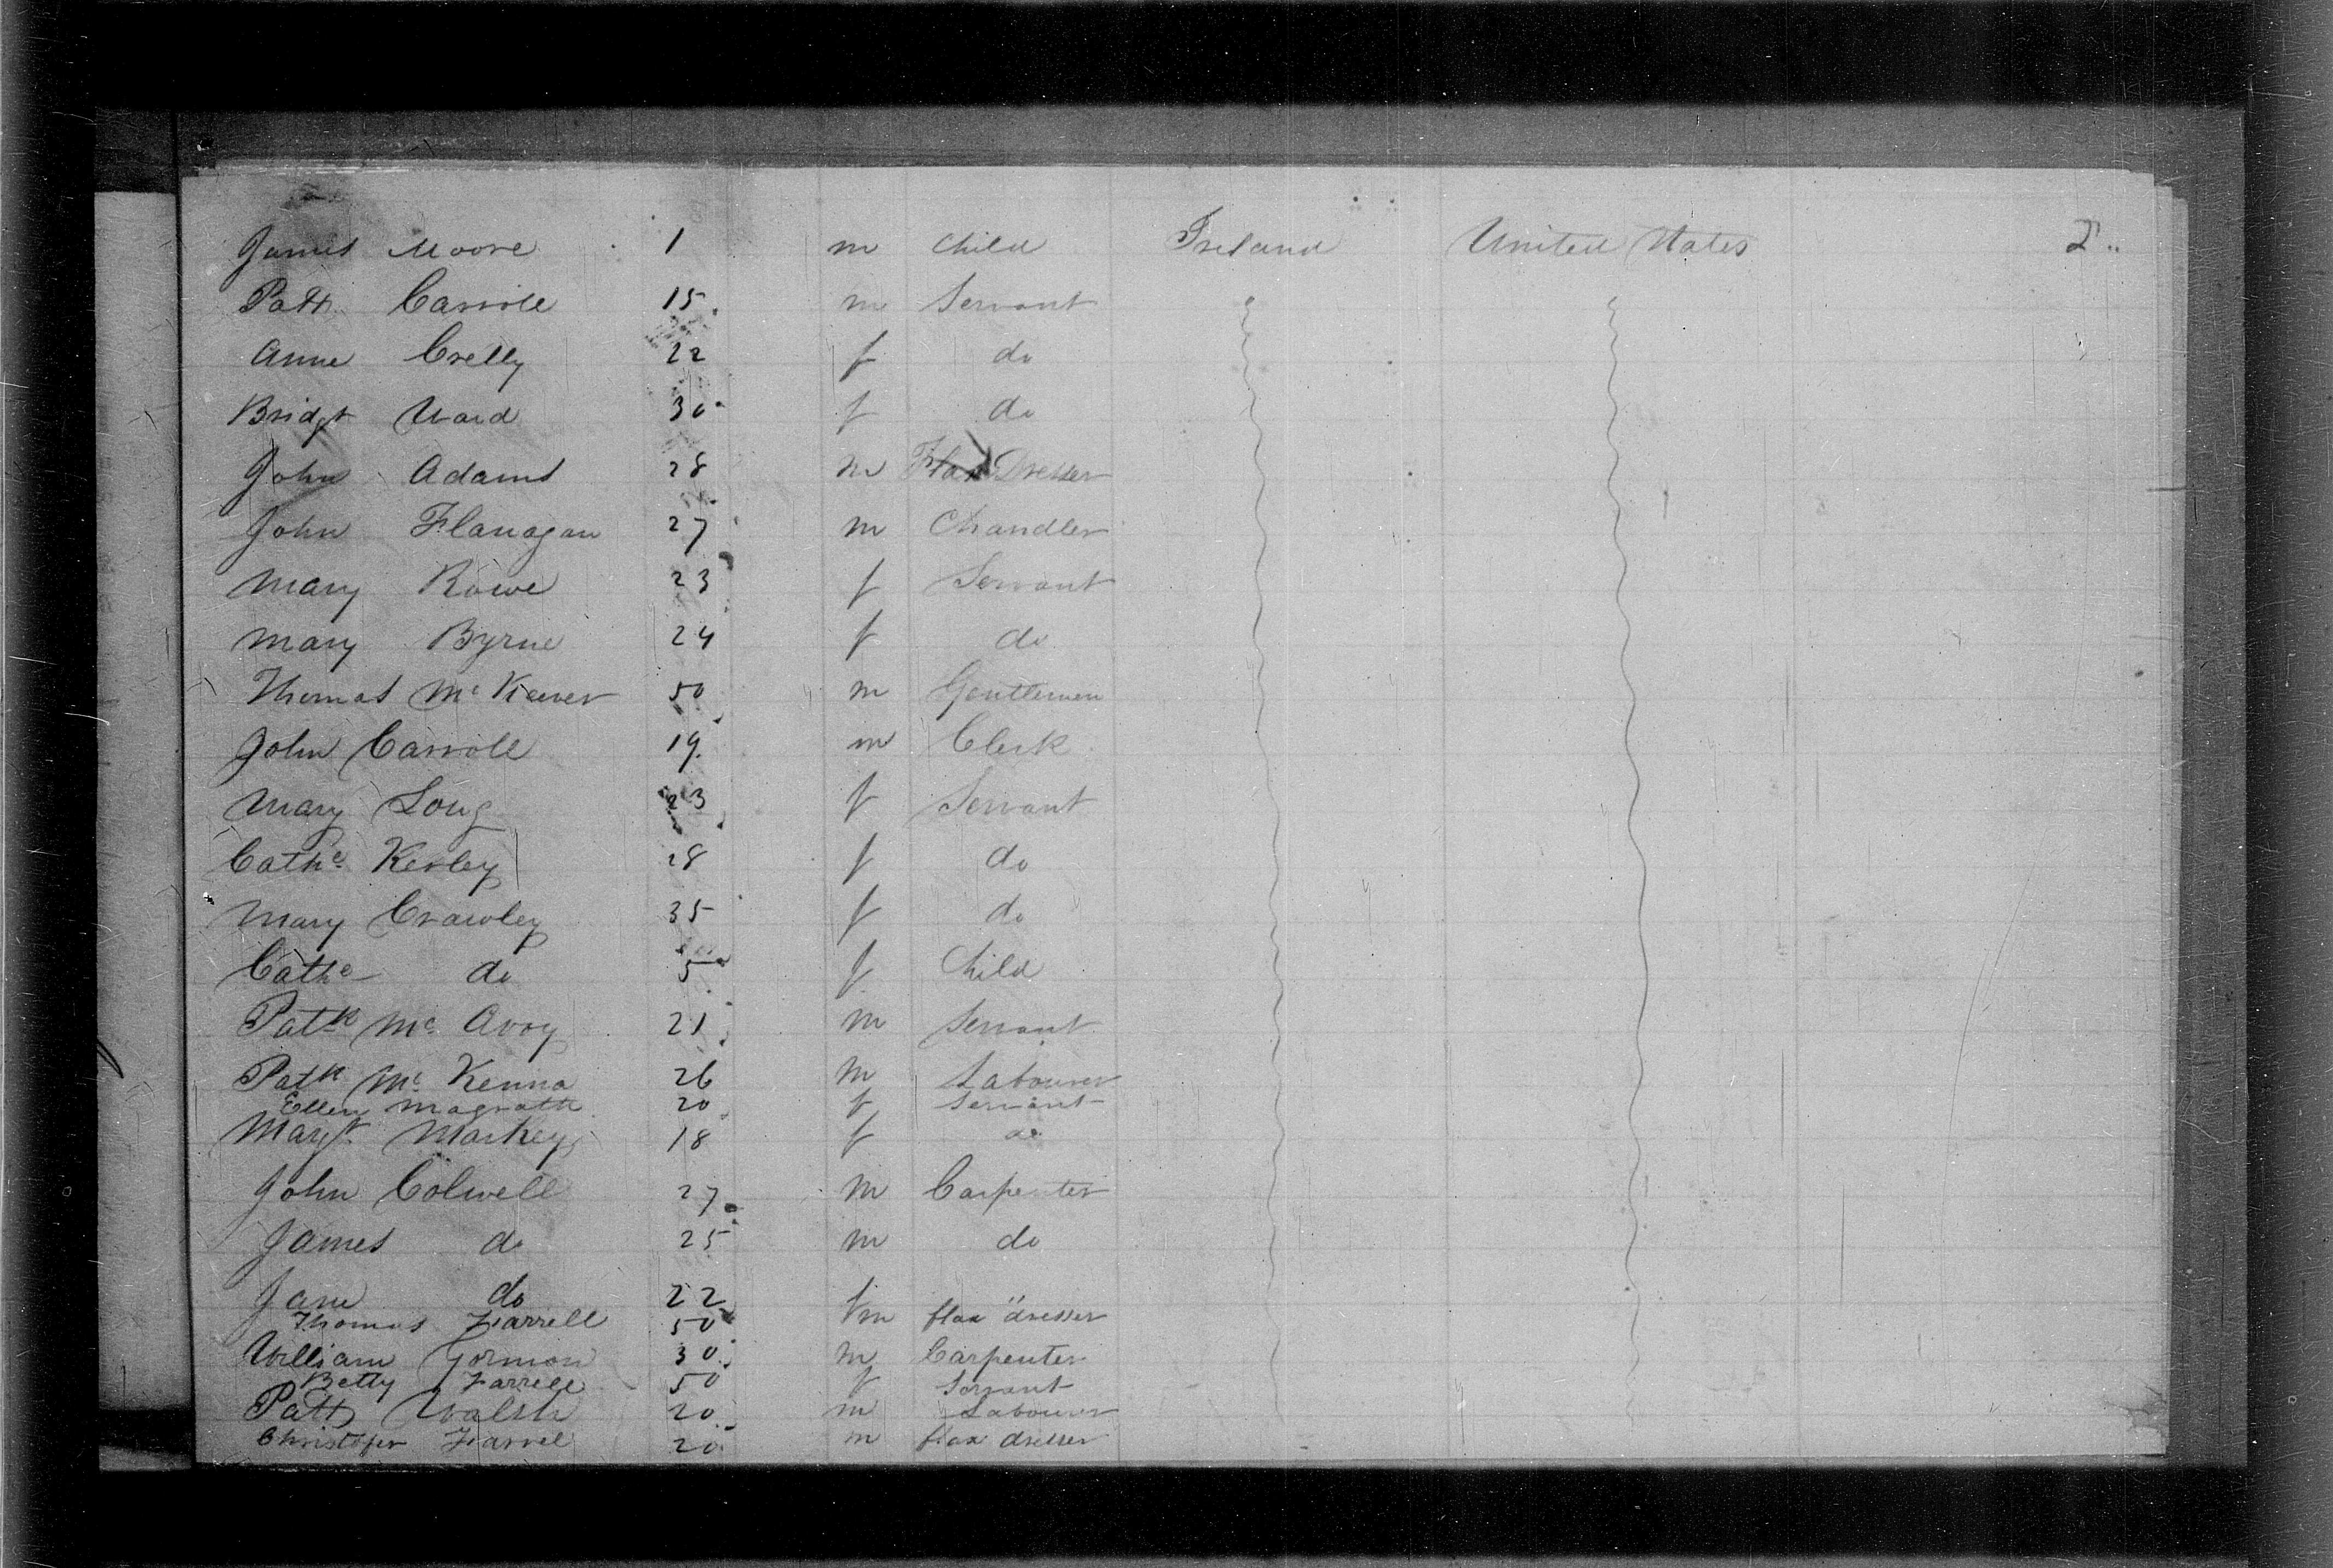 James Moore 1 m Child Ireland United States 2
Patt Carroll 15 m Servant
Anne Crelly 22 f do
Bridgt Ward 30 f do
John Adams 28 m Flax Dresser
John Flanagan 27 m Chandler
Mary Rowe 23 f Servant
Mary Byrne 24 f do
Thomas McKeever 50 m Gentlemen
John Carroll 19 m Clerk
Mary Long 23 f Servant
Cathe Kerley 28 f do
Mary Crawley 35 f do
Cathe do 5 f Child
Patk McAvoy 21 m Servant
Patk McKenna 26 m Labourer
Ellen Magrath 20 f Servant
Margt Markey 18 f do
John Colwell 27 m Carpenter
James do 25 m do
Jane do 22 f "
Thomas Farrell 50 m flax dresser
William Gorman 30 m Carpenter
Betty Farrell 50 f Servant
Patt Walsh 20 m Labourer
Christoper Farrel 20 m flax dresser